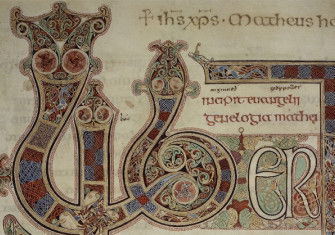 + ihs xps · Mattheus ho
incipit euangelii
genelogia mathei
LIBER